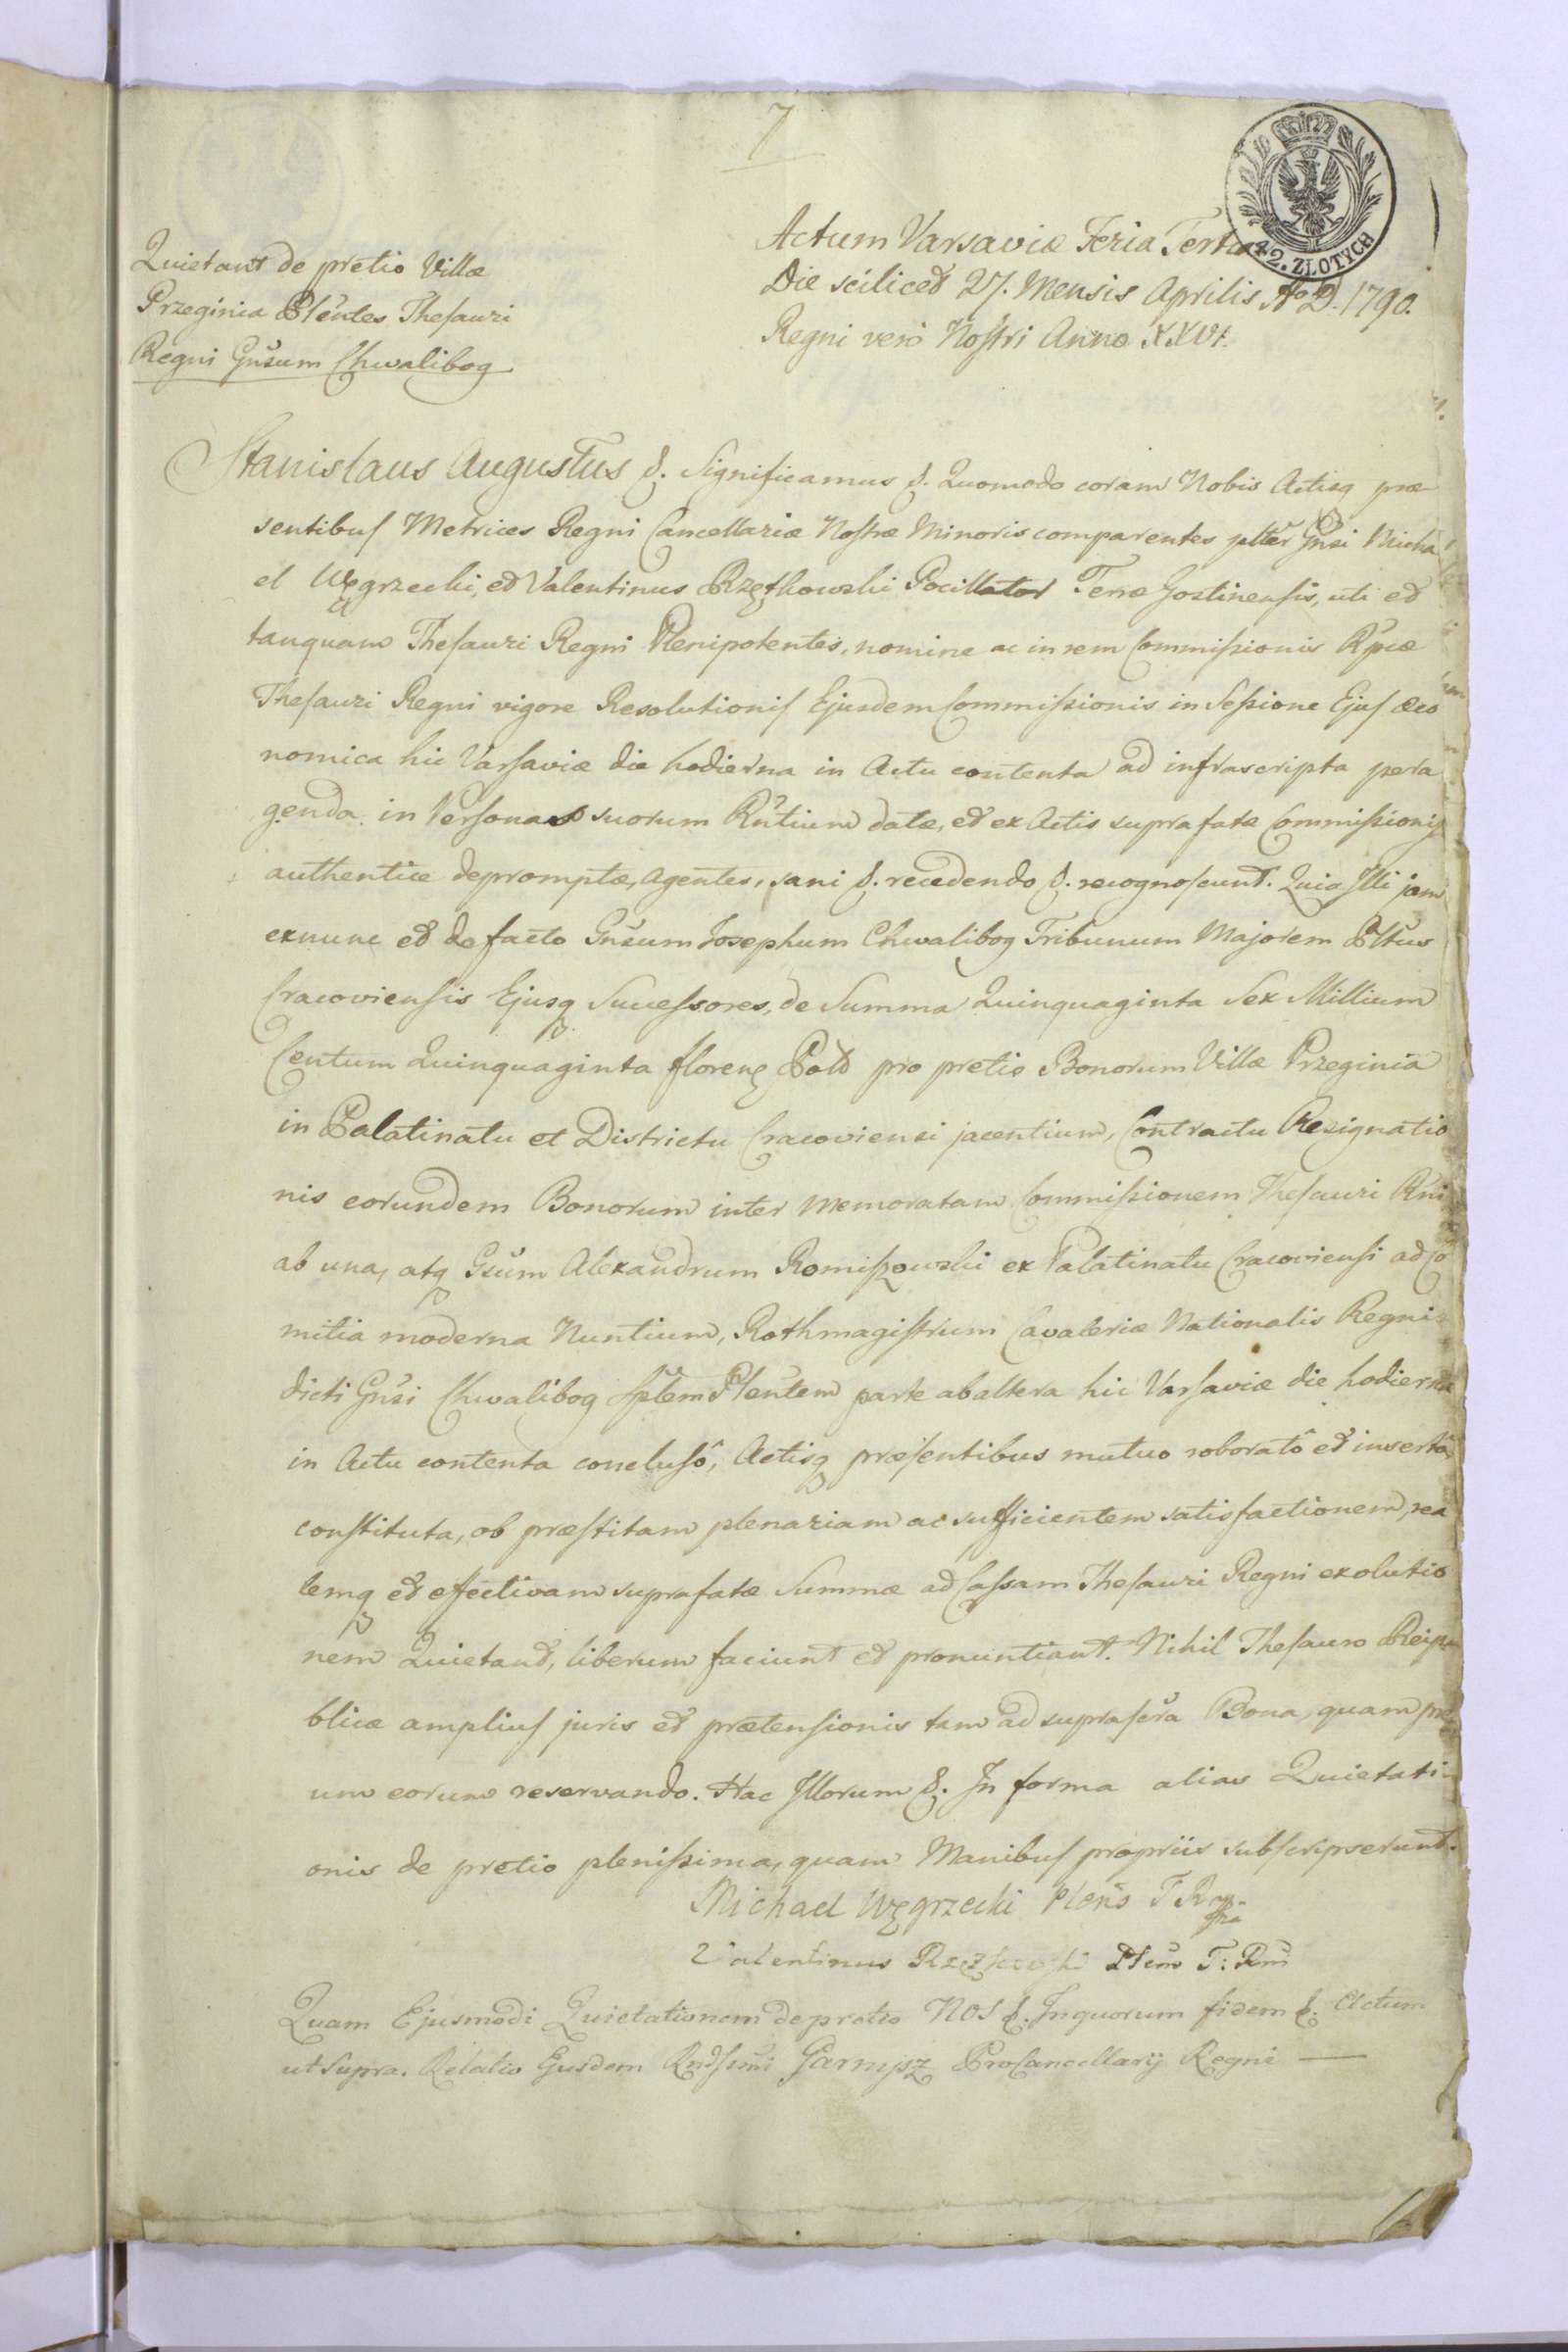 7
Actum Varsaviæ Feria Tertia
42. ZŁOTYCH
Die scilicet 27. Mensis Aprilis Ao D. 1790.
Regni verò Nostri Anno XXVI.
Quietant de pretio Villæ
Przeginia Plentes Thesauri
Regni Gnsum Chwalibog
Stanislaus Augustus &. Significamus &. Quomodo coram Nobis Actisq præ
sentibus Metrices Regni Cancellariæ Nostræ Minoris comparentes plter Gnsi Micha
el Węgrzecki, et Valentinus Rzętkowski Pocillator Terræ Gostinensis, uti et
tanquam Thesauri Regni Plenipotentes, nomine ac in rem Commissionis Rpcæ
Thesauri Regni vigore Resolutionis Ejusdem Commissionis in Sessione Ejus Œco
nomica hic Varsaviæ die hodierna in Actu contenta ad infrascripta pera
genda in Personas suorum Rntium datæ, et ex Actis suprafatæ Commissionis
authentice depromptæ, Agentes, sani &. recedendo &. recognoscunt. Quia Illi jam
exnunc et de facto Gnsum Josephum Chwalibog Tribunum Majorem Pltus
Cracoviensis Ejusq Successores, de Summa Quinquaginta Sex Millium
Centum Quinquaginta floren Pold pro pretio Bonorum Villæ Przeginia
in Palatinatu et Districtu Cracoviensi jacentium, Contractu Resignatio
nis eorundem Bonorum inter Memoratam Commissionem Thesauri Rni
ab una, atq Gsum Alexandrum Romiszowski ex Palatinatu Cracoviensi ad Co
mitia moderna Nuntium, Rothmagistrum Cavaleriæ Nationalis Regni
dicti Gnsi Chwalibog Splem Plentem parte ab altera hic Varsaviæ die hodierna
in Actu contenta conclusô, Actisq præsentibus mutuo roboratô et insertô
constituta, ob præstitam plenariam ac sufficientem satisfactionem, rea
lemq et effectivam suprafatæ Summæ ad Cassam Thesauri Regni exolutio
nem Quietant, liberum faciunt et pronuntiant. Nihil Thesauro Reipu
blicæ amplius juris et prætensionis tam ad suprascra Bona, quam preti
um eorum reservando. Hac Illorum &. In forma alias Quietati
onis de pretio plenissima, quam Manibus propriis subscripserunt.
Michael Węgrzecki Plens T R mp
Valentinus Rzętkowski Plens T: Rni
Quam Ejusmodi Quietationem de pretio NOS &. In quorum fidem &. Actum
ut Supra. Relatio Ejusdem Rndssimi Garnysz Procancellarij Regni —